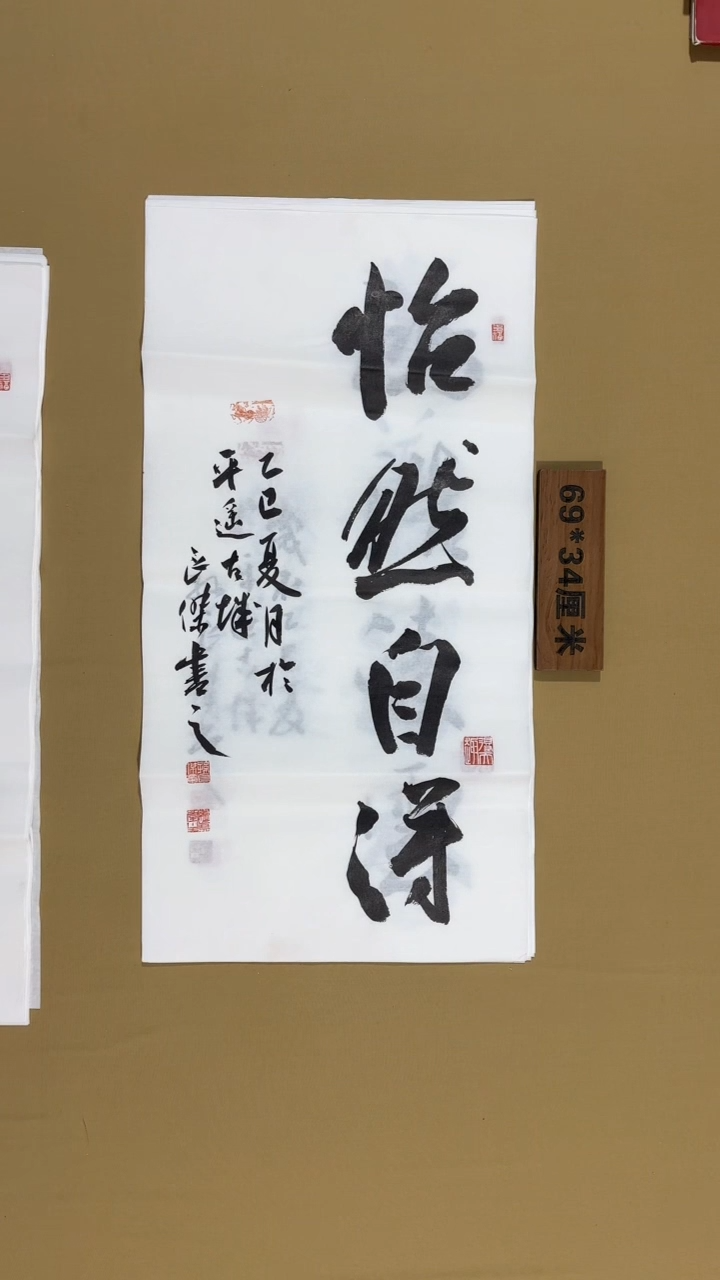 怡然自得
乙巳夏月於
平遥古城
正傑書之
69*34厘米